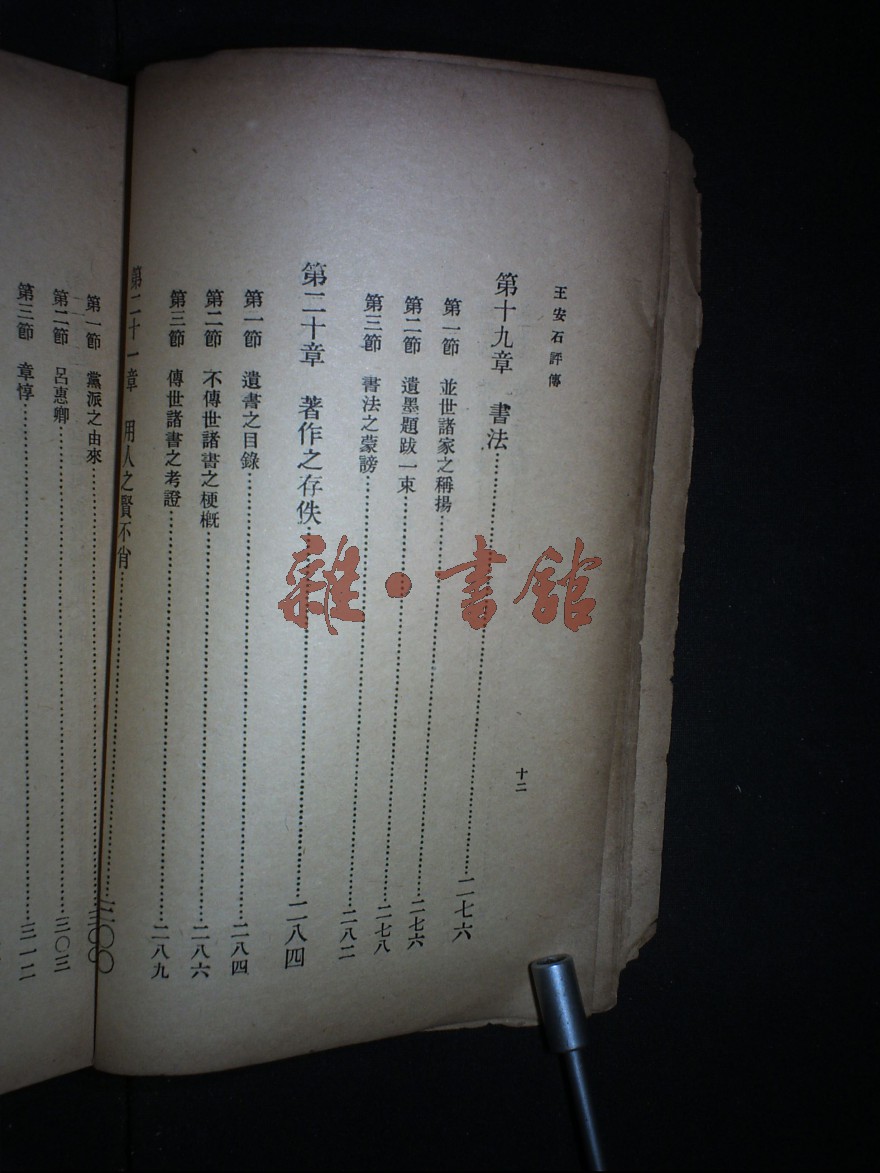 王安石評傳
十二
第十九章 書法……二七六
第一節 並世諸家之稱揚……二七六
第二節 遺墨題跋一束……二七八
第三節 書法之蒙謗……二八二
第二十章 著作之存佚……二八四
第一節 遺書之目錄……二八四
第二節 不傳世諸書之梗概……二八六
第三節 傳世諸書之考證……二八九
第二十一章 用人之賢不肖……三〇〇
第一節 黨派之由來……三〇〇
第二節 呂惠卿……三〇三
第三節 章惇……三一二
雜·書館